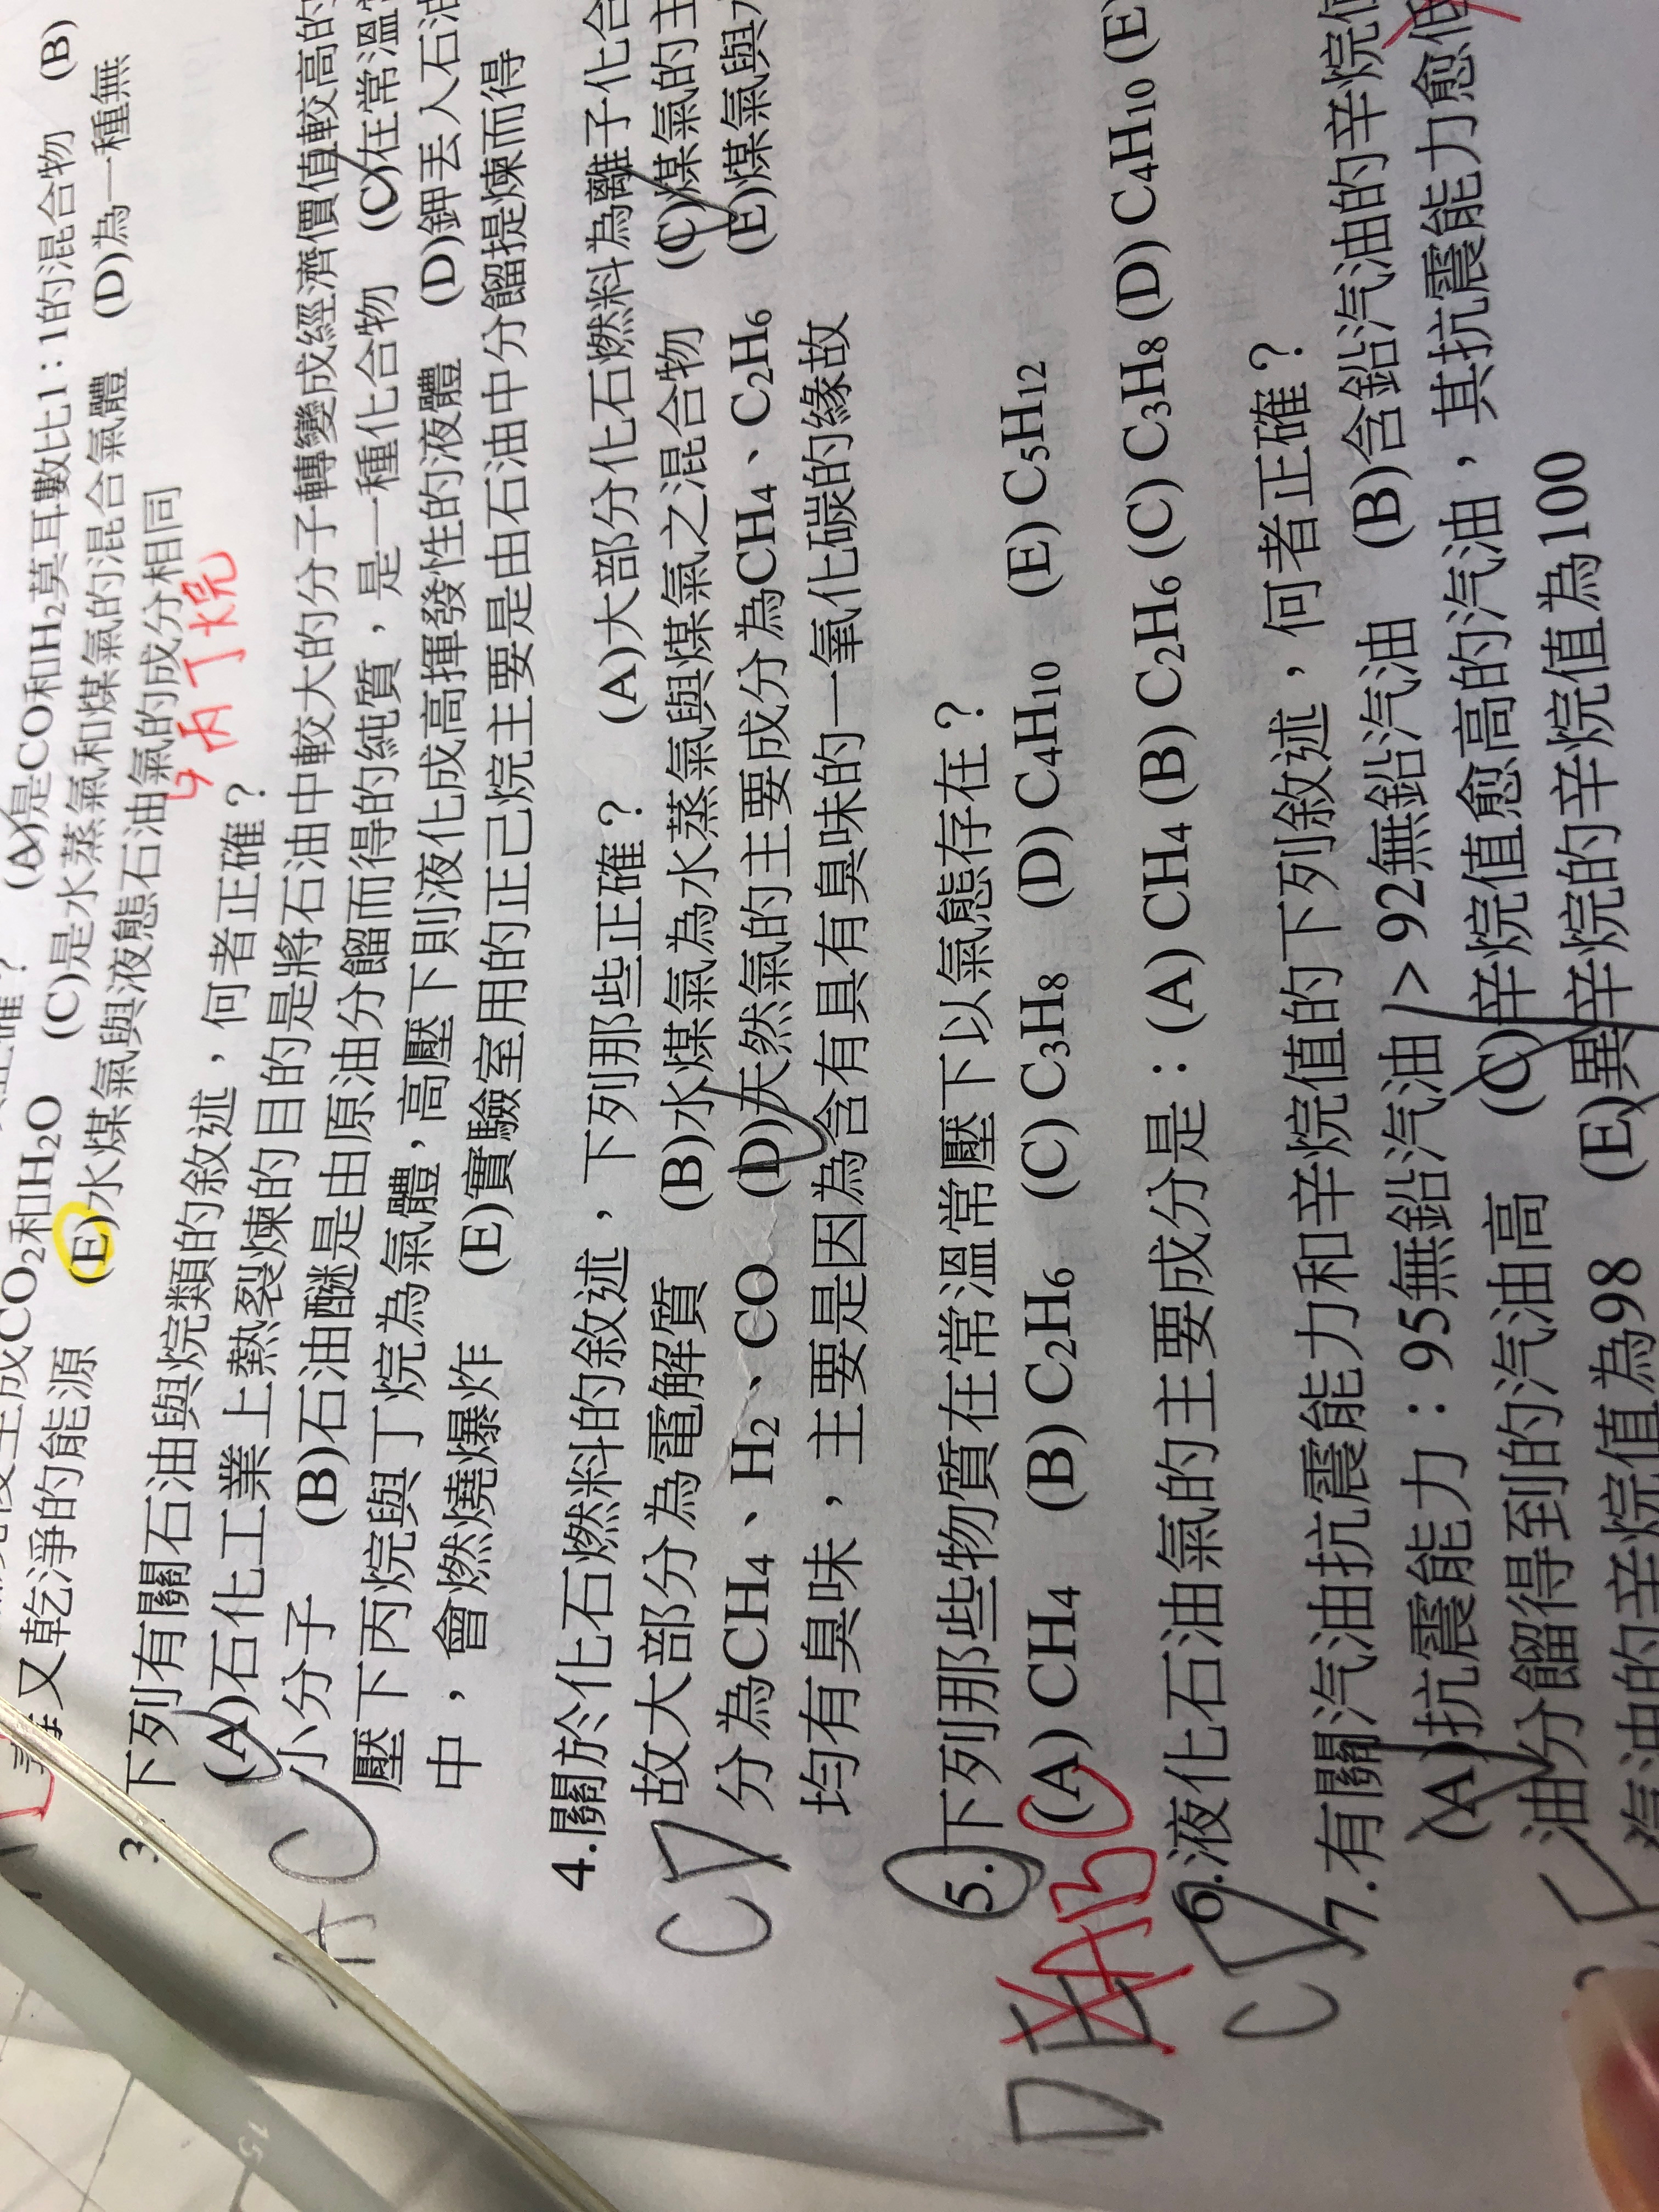 (A)是CO和H2莫耳數比1：1的混合物 (B)
成CO2和H2O (C)是水蒸氣和煤氣的混合氣體 (D)為一種無
毒又乾淨的能源 (E)水煤氣與液態石油氣的成分相同
↳丙丁烷
3. 下列有關石油與烷類的敘述，何者正確？
AC
(A)石化工業上熱裂煉的目的是將石油中較大的分子轉變成經濟價值較高的
小分子 (B)石油醚是由原油分餾而得的純質，是一種化合物 (C)在常溫常
壓下丙烷與丁烷為氣體，高壓下則液化成高揮發性的液體 (D)鉀丟入石油
中，會燃燒爆炸 (E)實驗室用的正己烷主要是由石油中分餾提煉而得
4.關於化石燃料的敘述，下列那些正確？ (A)大部分化石燃料為離子化合
CD
故大部分為電解質 (B)水煤氣為水蒸氣與煤氣之混合物 (C)煤氣的主
分為CH4、H2、CO (D)天然氣的主要成分為CH4、C2H6 (E)煤氣與
均有臭味，主要是因為含有具有臭味的一氧化碳的緣故
5.下列那些物質在常溫常壓下以氣態存在？
DE AB
(A) CH4 (B) C2H6 (C) C3H8 (D) C4H10 (E) C5H12
6.液化石油氣的主要成分是：(A) CH4 (B) C2H6 (C) C3H8 (D) C4H10 (E)
CD
7.有關汽油抗震能力和辛烷值的下列敘述，何者正確？
(A)抗震能力：95無鉛汽油 > 92無鉛汽油 (B)含鉛汽油的辛烷值
油分餾得到的汽油高 (C)辛烷值愈高的汽油，其抗震能力愈低
汽油的辛烷值為98 (E)異辛烷的辛烷值為100
15